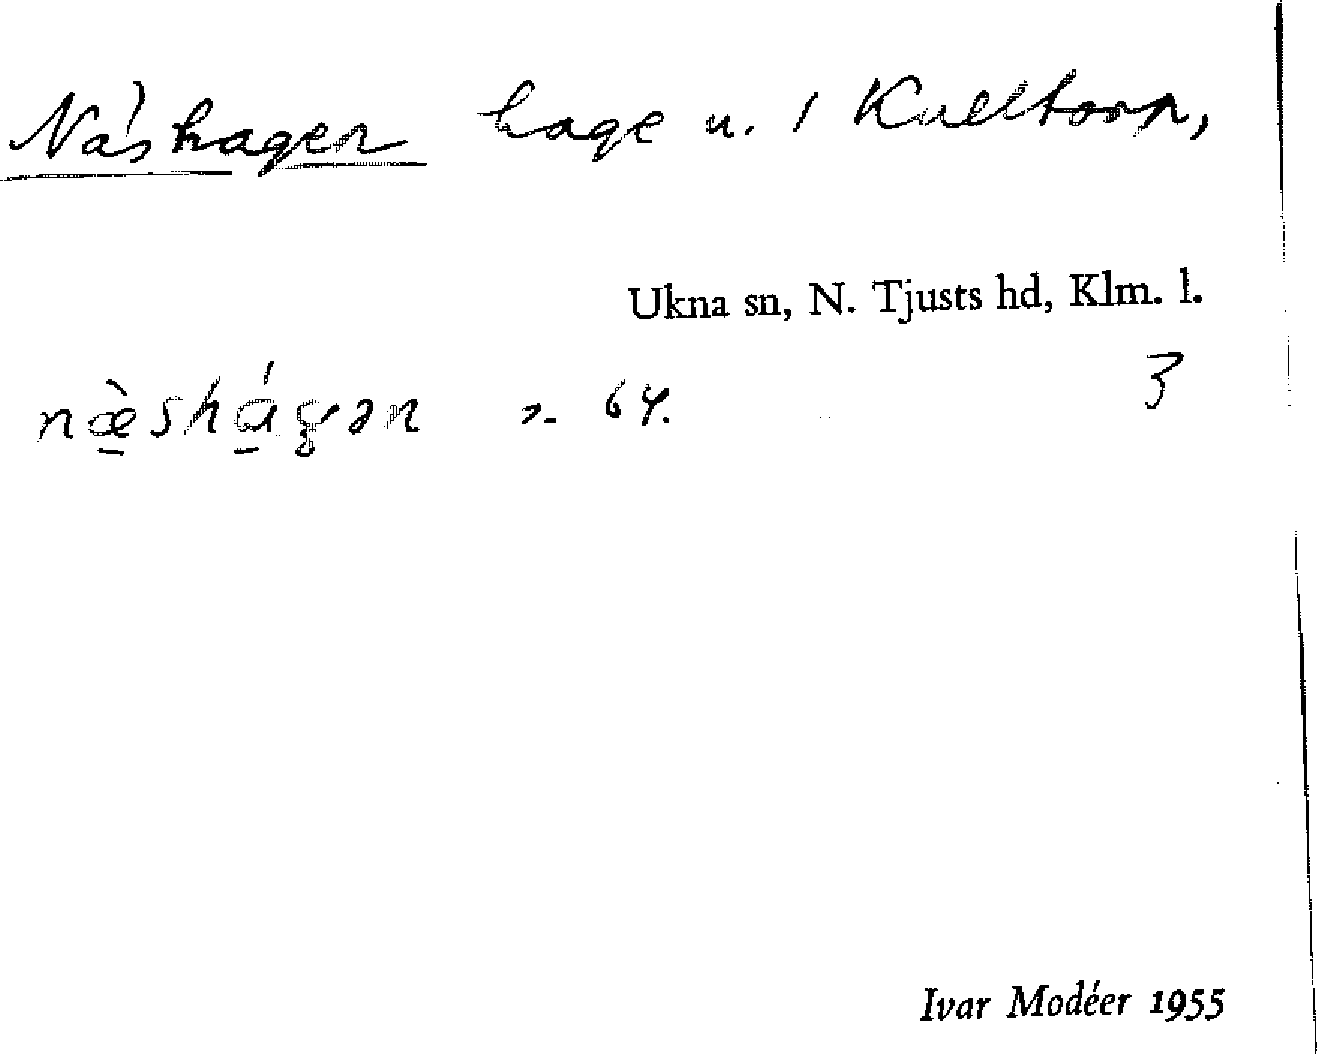 Näshagen hage u. 1 Kulltorp,
Ukna sn, N. Tjusts hd, Klm. l.
næ̀shágən 64. 3
Ivar Modéer 1955